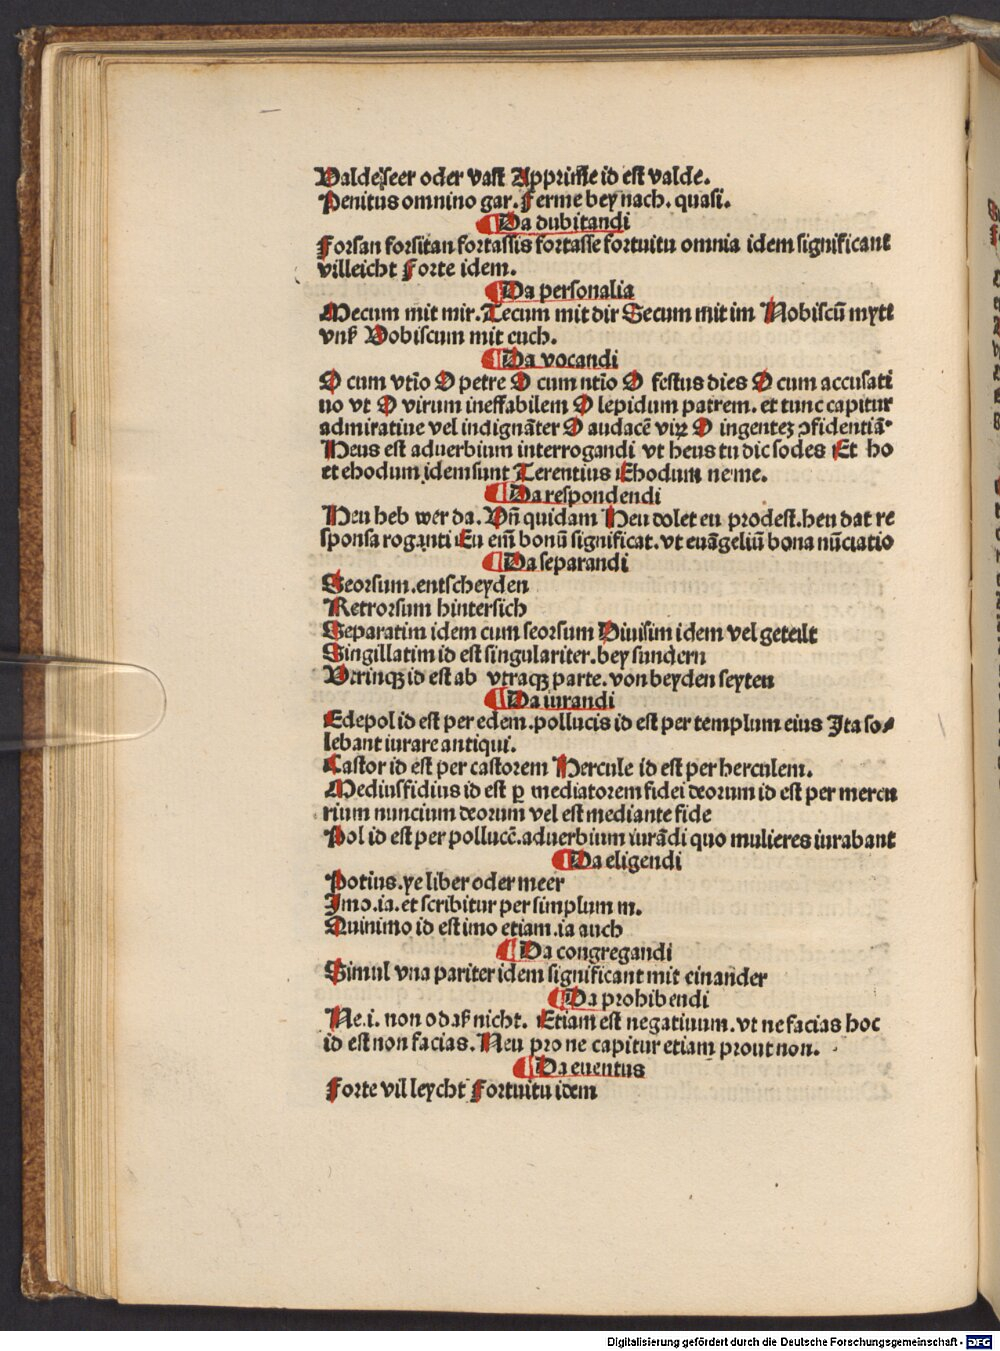 Valde seer oder vast Apprime id est valde.
Penitus omnino gar. Ferme bey nach. quasi.
¶ Da dubitandi
Forsan forsitan fortassis fortasse fortuitu omnia idem significant
villeicht Forte idem.
¶ Da personalia
Mecum mit mir. Tecum mit dir Secum mit im Nobiscū mytt
vnß Vobiscum mit euch.
¶ Da vocandi
O cum vtīo O petre O cum ntīo O festus dies O cum accusati
uo vt O virum ineffabilem O lepidum patrem. et tunc capitur
admiratiue vel indignāter O audacē viꝝ O ingentez ꝯfidentiā.
Heus est aduerbium interrogandi vt heus tu dic sodes Et ho
et ehodum idem sunt Terentius Ehodum ne me.
¶ Da respondendi
Heu heb wer da. Vn̄ quidam Heu dolet eu prodest. heu dat re
sponsa roganti Eu eiī bonū significat. vt euāgeliū bona nūciatio
¶ Da separandi
Seorsum. entscheyden
Retrorsum hintersich
Separatim idem cum seorsum Diuisim idem vel geteilt
Singillatim id est singulariter. bey sundern
Vtrinqꝫ id est ab vtraqꝫ parte. von beyden seyten
¶ Da iurandi
Edepol id est per edem. pollucis id est per templum eius Ita so⸗
lebant iurare antiqui.
Castor id est per castorem Hercule id est per herculem.
Mediusfidius id est ꝑ mediatorem fidei deorum id est per mercu
rium nuncium deorum vel est mediante fide
Pol id est per pollucē. aduerbium iurādi quo mulieres iurabant
¶ Da eligendi
Potius. ye liber oder meer
Imo. ia. et scribitur per simplum m.
Quinimo id est imo etiam. ia auch
¶ Da congregandi
Simul vna pariter idem significant mit einander
¶ Da prohibendi
Ne .i. non o daß nicht. Etiam est negatiuum. vt ne facias hoc
id est non facias. Neu pro ne capitur etiam prout non.
¶ Da euentus
Forte villeycht Fortuitu idem
Digitalisierung gefördert durch die Deutsche Forschungsgemeinschaft - DFG